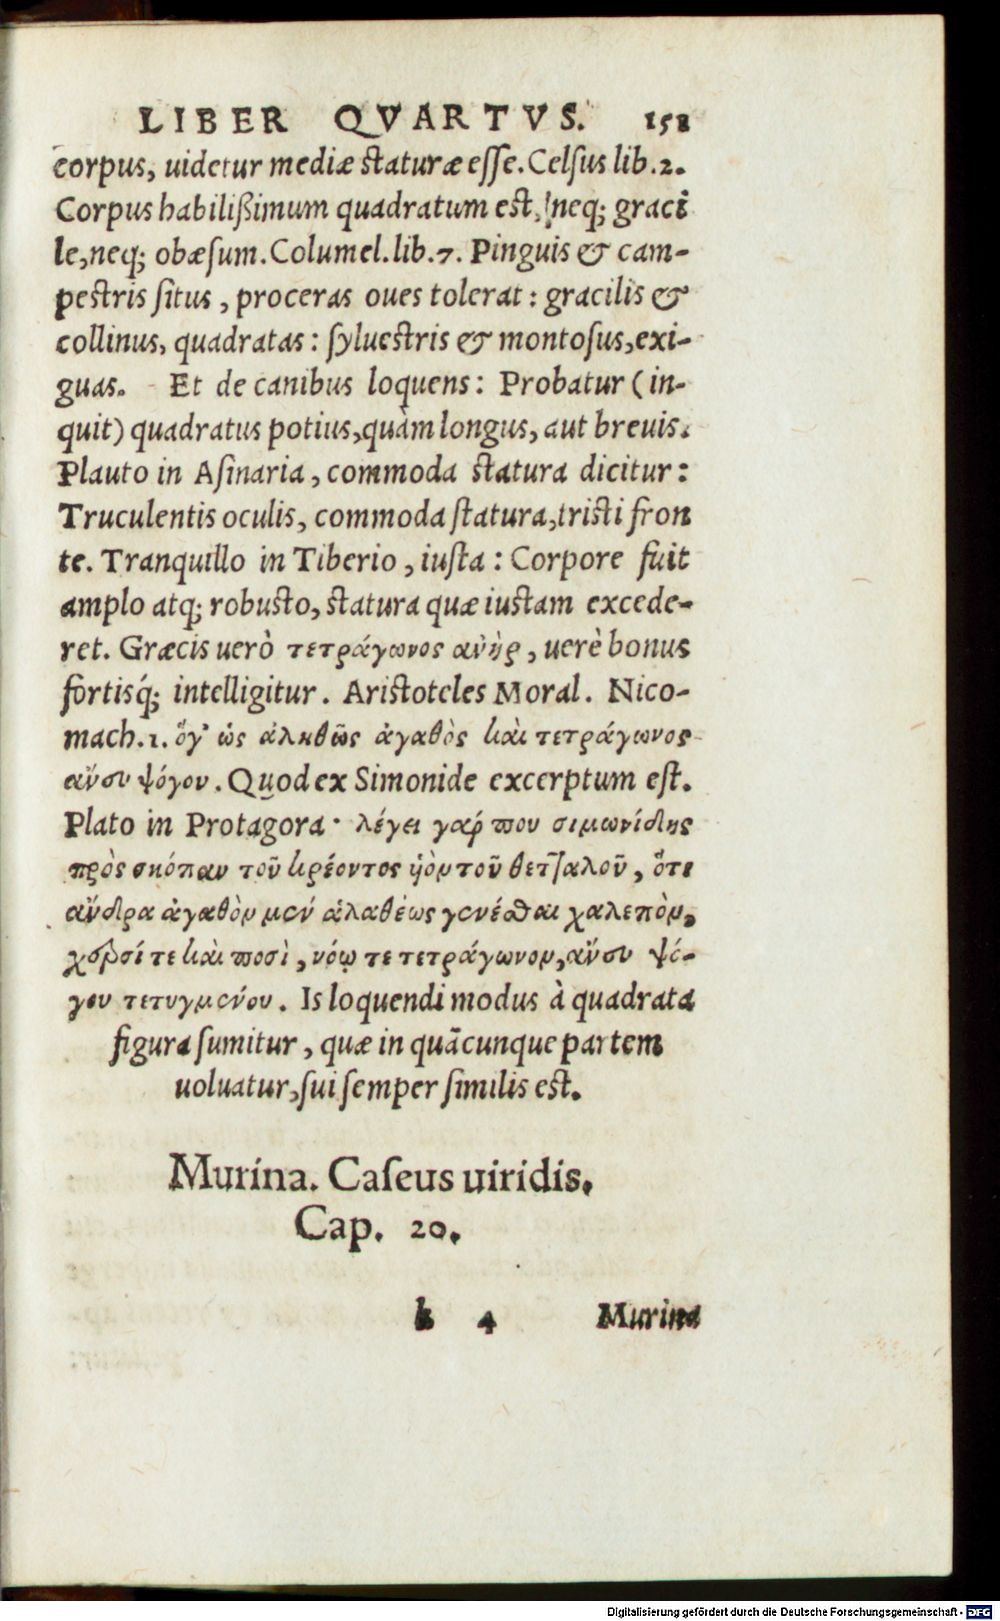 LIBER QVARTVS. 158
corpus, uidetur mediæ staturæ esse. Celsus lib.2.
Corpus habilißimum quadratum est, neq; graci
le, neq; obæsum. Columel. lib. 7. Pinguis & cam-
pestris situs, proceras oues tolerat: gracilis &
collinus, quadratas: syluestris & montosus, exi-
guas. Et de canibus loquens: Probatur (in-
quit) quadratus potius, quàm longus, aut breuis.
Plauto in Asinaria, commoda statura dicitur:
Truculentis oculis, commoda statura, tristi fron
te. Tranquillo in Tiberio, iusta: Corpore fuit
amplo atq; robusto, statura quæ iustam excede-
ret. Græcis uerò τετράγωνος ανὴρ, uerè bonus
fortisq́; intelligitur. Aristoteles Moral. Nico-
mach.1. ὅγ' ὡς ἀληθῶς ἀγαθὸς καὶ τετράγωνος
ανευ ψόγου. Quod ex Simonide excerptum est.
Plato in Protagora· λέγει γαρ που σιμωνίδης
πρὸς σκόπαν τοῦ κρέοντος ὑὸν τοῦ θετταλοῦ, ὅτι
ανδρα ἀγαθὸν μεν ἀλαθέως γενέσθαι χαλεπὸν,
χερσί τε καὶ ποσὶ, νόῳ τε τετράγωνον, ανευ ψό-
γου τετυγμενου. Is loquendi modus à quadrata
figura sumitur, quæ in quãcunque partem
uoluatur, sui semper similis est.
Murina. Caseus uiridis.
Cap. 20.
k 4 Murina
Digitalisierung gefördert durch die Deutsche Forschungsgemeinschaft - DFG